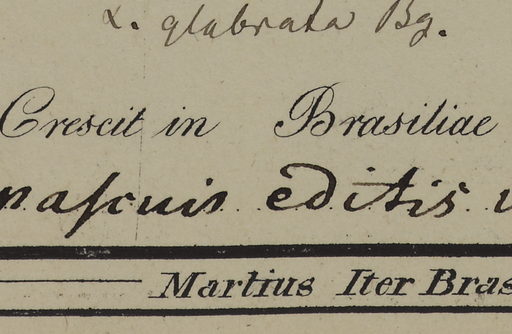 α. glabrata Bg.
Crescit in Brasiliae
pascuis editis
Martius Iter Bras